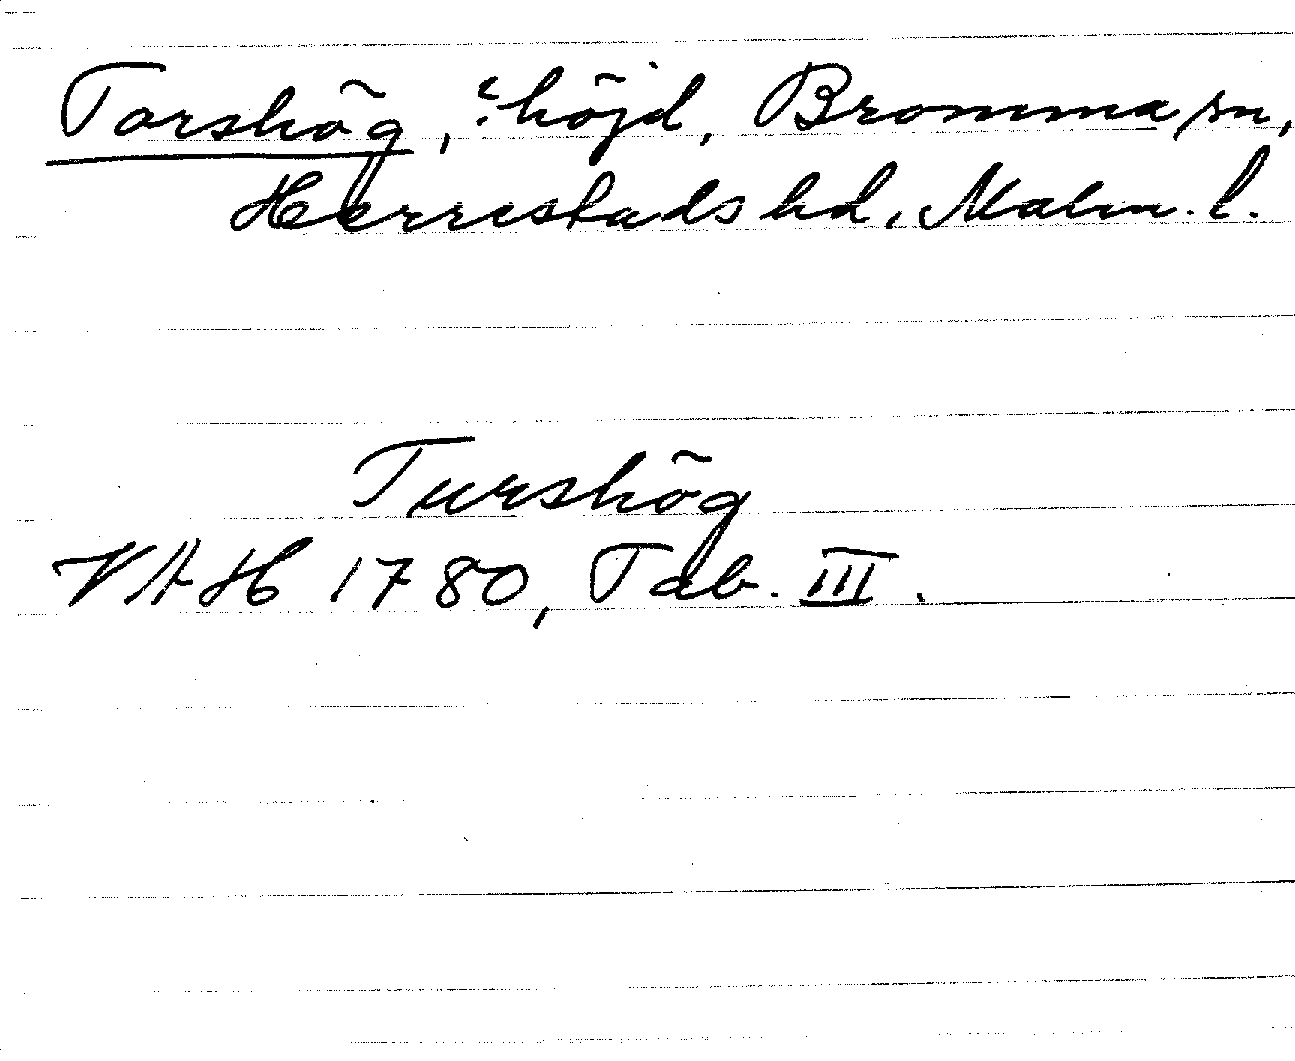 Torshög, ? höjd, Bromma sn,
Herrestads hd, Malm. l.
Turshög
VAH 1780, Tab. III.